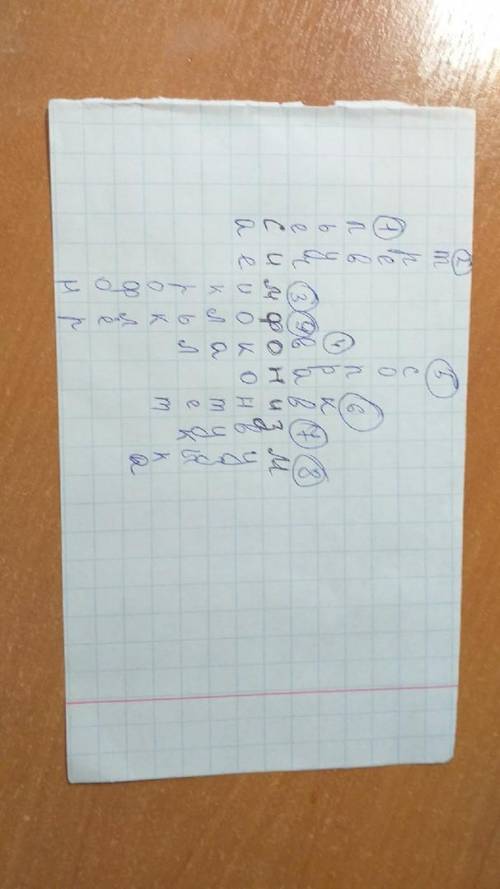 1 п ь е с а
2 т р е в у ч и е
3 м и к р о ф о н
9 ф о л ь к л е р
4 в о к а л
5 с о п р а н о
6 к в и н т е т
7 з в у к
8 м у з ы к а